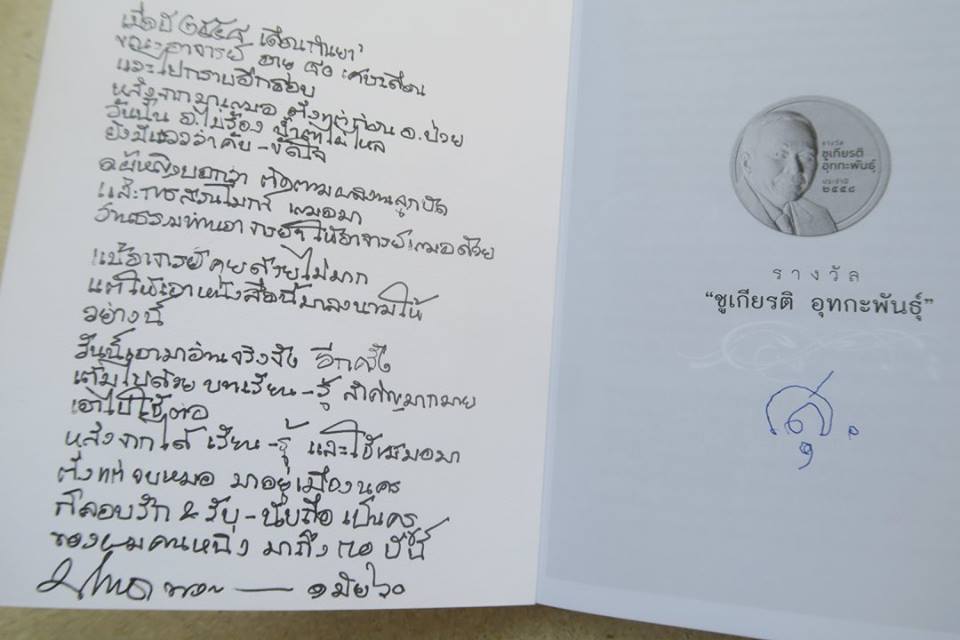 เมื่อปี ๒๕๕๔ เดือนกันยา
ขณะอาจารย์ อายุ ๘๐ เศษเดือน
และไปกราบอีกรอบ
หลังจากมาเสมอ ตั้งแต่ก่อน อ.ป่วย
วันนั้น อ.ไม่ร้อง น้ำตาไม่ไหล
ยังมีแววว่าคับ-ขัดใจ
บอกว่า ติดตามผลงานลูกปัด
และการสวนโมกข์ เสมอมา
งานธรรมท่านอาจารย์ฯ ให้อาจารย์เสมอด้วย
แม้อาจารย์คุยด้วยไม่มาก
แต่ให้เอาหนังสือนี้มาลงนามให้
อย่างนี้
วันนี้เอามาอ่านจริงจัง อีกครั้ง
เต็มไปด้วย บทเรียน-รู้ สำคัญมากมาย
เอาไปใช้ต่อ
หลังจากได้ เรียน-รู้ และใช้เสมอมา
ตั้งแต่จบหมอ มาอยู่เมืองนคร
ก็ลอบรัก & รับ-นับถือ เป็นครู
ของผมคนหนึ่ง มาถึง ปีนี้
รางวัล
ชูเกียรติ
อุทกะพันธุ์
ประจำปี
๒๕๕๔
รางวัล
“ชูเกียรติ อุทกะพันธุ์”